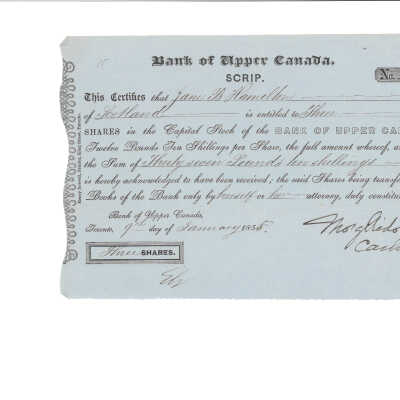 Bank of Upper Canada.
SCRIP.
No.
This Certifies that Jane B Hamilton
of Scotland is entitled to Three
SHARES in the Capital Stock of the BANK OF UPPER CA
Twelve Pounds Ten Shillings per Share, the full amount whereof, a
the Sum of Thirty seven Pounds ten shillings
is hereby acknowledged to have been received; the said Shares being transf
Books of the Bank only by herself or her attorney, duly constitu
Bank of Upper Canada,
Toronto, 9th day of January 1855.
Three SHARES.